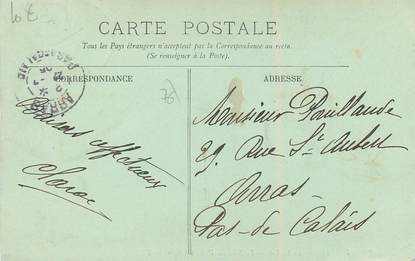 10 €
CARTE POSTALE
Tous les Pays étrangers n'acceptent pas la Correspondance au recto.
(Se renseigner à la Poste).
CORRESPONDANCE
ADRESSE
ARRAS
PAS-DE-CALAIS
Baisers affectueux
Monsieur Pouillaude
29 Rue St Aubert
Arras
Pas-de-Calais